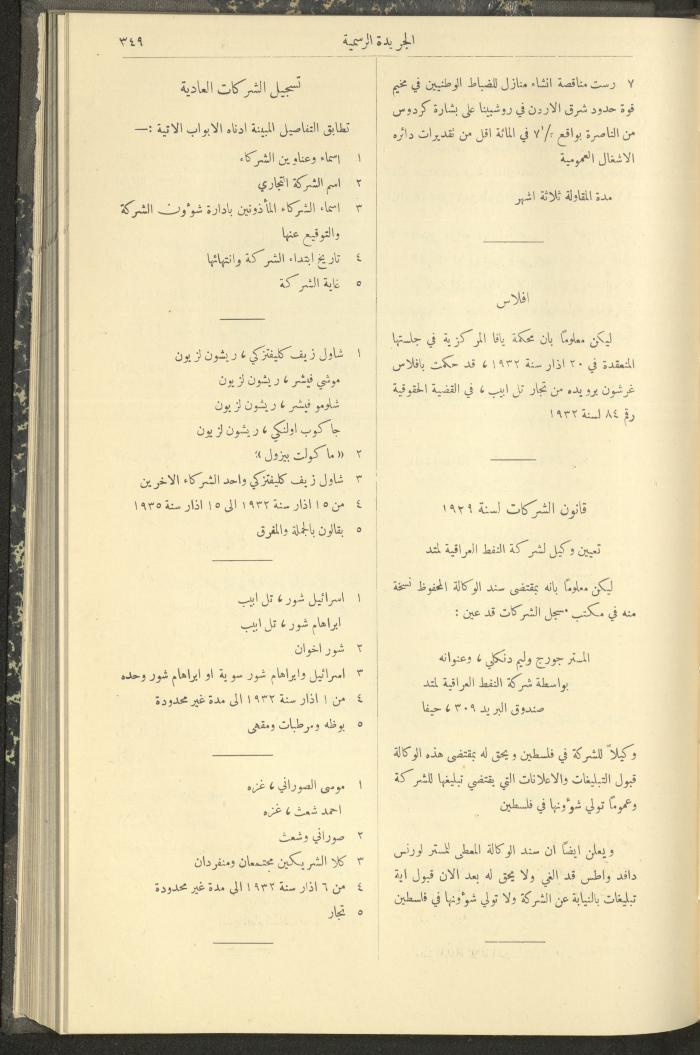 الجريدة الرسمية
٣٤٩
٧ رست مناقصة انشاء منازل للضباط الوطنيين في مخيم
قوة حدود شرق الاردن في روشبينا على بشارة كردوس
من الناصرة بواقع ٧ في المائة اقل من تقديرات دائرة
الاشغال العمومية
مدة المقاولة ثلاثة اشهر
افلاس
ليكن معلومًا بان محكمة يافا المركزية في جلستها
المنعقدة في ٢٠ اذار سنة ١٩٣٢، قد حكمت بافلاس
غرشون برويده من تجار تل ابيب، في القضية الحقوقية
رقم ٨٤ لسنة ١٩٣٢
قانون الشركات لسنة ١٩٢٩
تعيين وكيل لشركة النفط العراقية لمتد
ليكن معلومًا بانه بمقتضى سند الوكالة المحفوظ نسخة
منه في مكتب مسجل الشركات قد عين :
المستر جورج وليم دنكلي، وعنوانه
بواسطة شركة النفط العراقية لمتد
صندوق البريد ٣٠٩، حيفا
وكيلاً للشركة في فلسطين ويحق له بمقتضى هذه الوكالة
قبول التبليغات والاعلانات التي يقتضي تبليغها للشركة
وعمومًا تولي شؤونها في فلسطين
ويعلن ايضًا ان سند الوكالة المعطى للمستر لورنس
دافد واطس قد الغي ولا يحق له بعد الان قبول اية
تبليغات بالنيابة عن الشركة ولا تولي شؤونها في فلسطين
تسجيل الشركات العادية
تطابق التفاصيل المبينة ادناه الابواب الاتية :—
١ اسماء وعناوين الشركاء
٢ اسم الشركة التجاري
٣ اسماء الشركاء المأذونين بادارة شؤون الشركة
والتوقيع عنها
٤ تاريخ ابتداء الشركة وانتهائها
٥ غاية الشركة
١ شاول زيف كليفتزكي، ريشون لزيون
موشي فيشر، ريشون لزيون
شلومو فيشر، ريشون لزيون
جاكوب اولنكي، ريشون لزيون
٢ «ماكولت بيزول»
٣ شاول زيف كليفتزكي واحد الشركاء الاخرين
٤ من ١٥ اذار سنة ١٩٣٢ الى ١٥ اذار سنة ١٩٣٥
٥ بقالون بالجملة والمفرق
١ اسرائيل شور، تل ابيب
ابراهام شور، تل ابيب
٢ شور اخوان
٣ اسرائيل وابراهام شور سوية او ابراهام شور وحده
٤ من ١ اذار سنة ١٩٣٢ الى مدة غير محدودة
٥ بوظه ومرطبات ومقهى
١ موسى الصوراني، غزه
احمد شعث، غزه
٢ صوراني وشعث
٣ كلا الشريكين مجتمعان ومنفردان
٤ من ٦ اذار سنة ١٩٣٢ الى مدة غير محدودة
٥ تجار